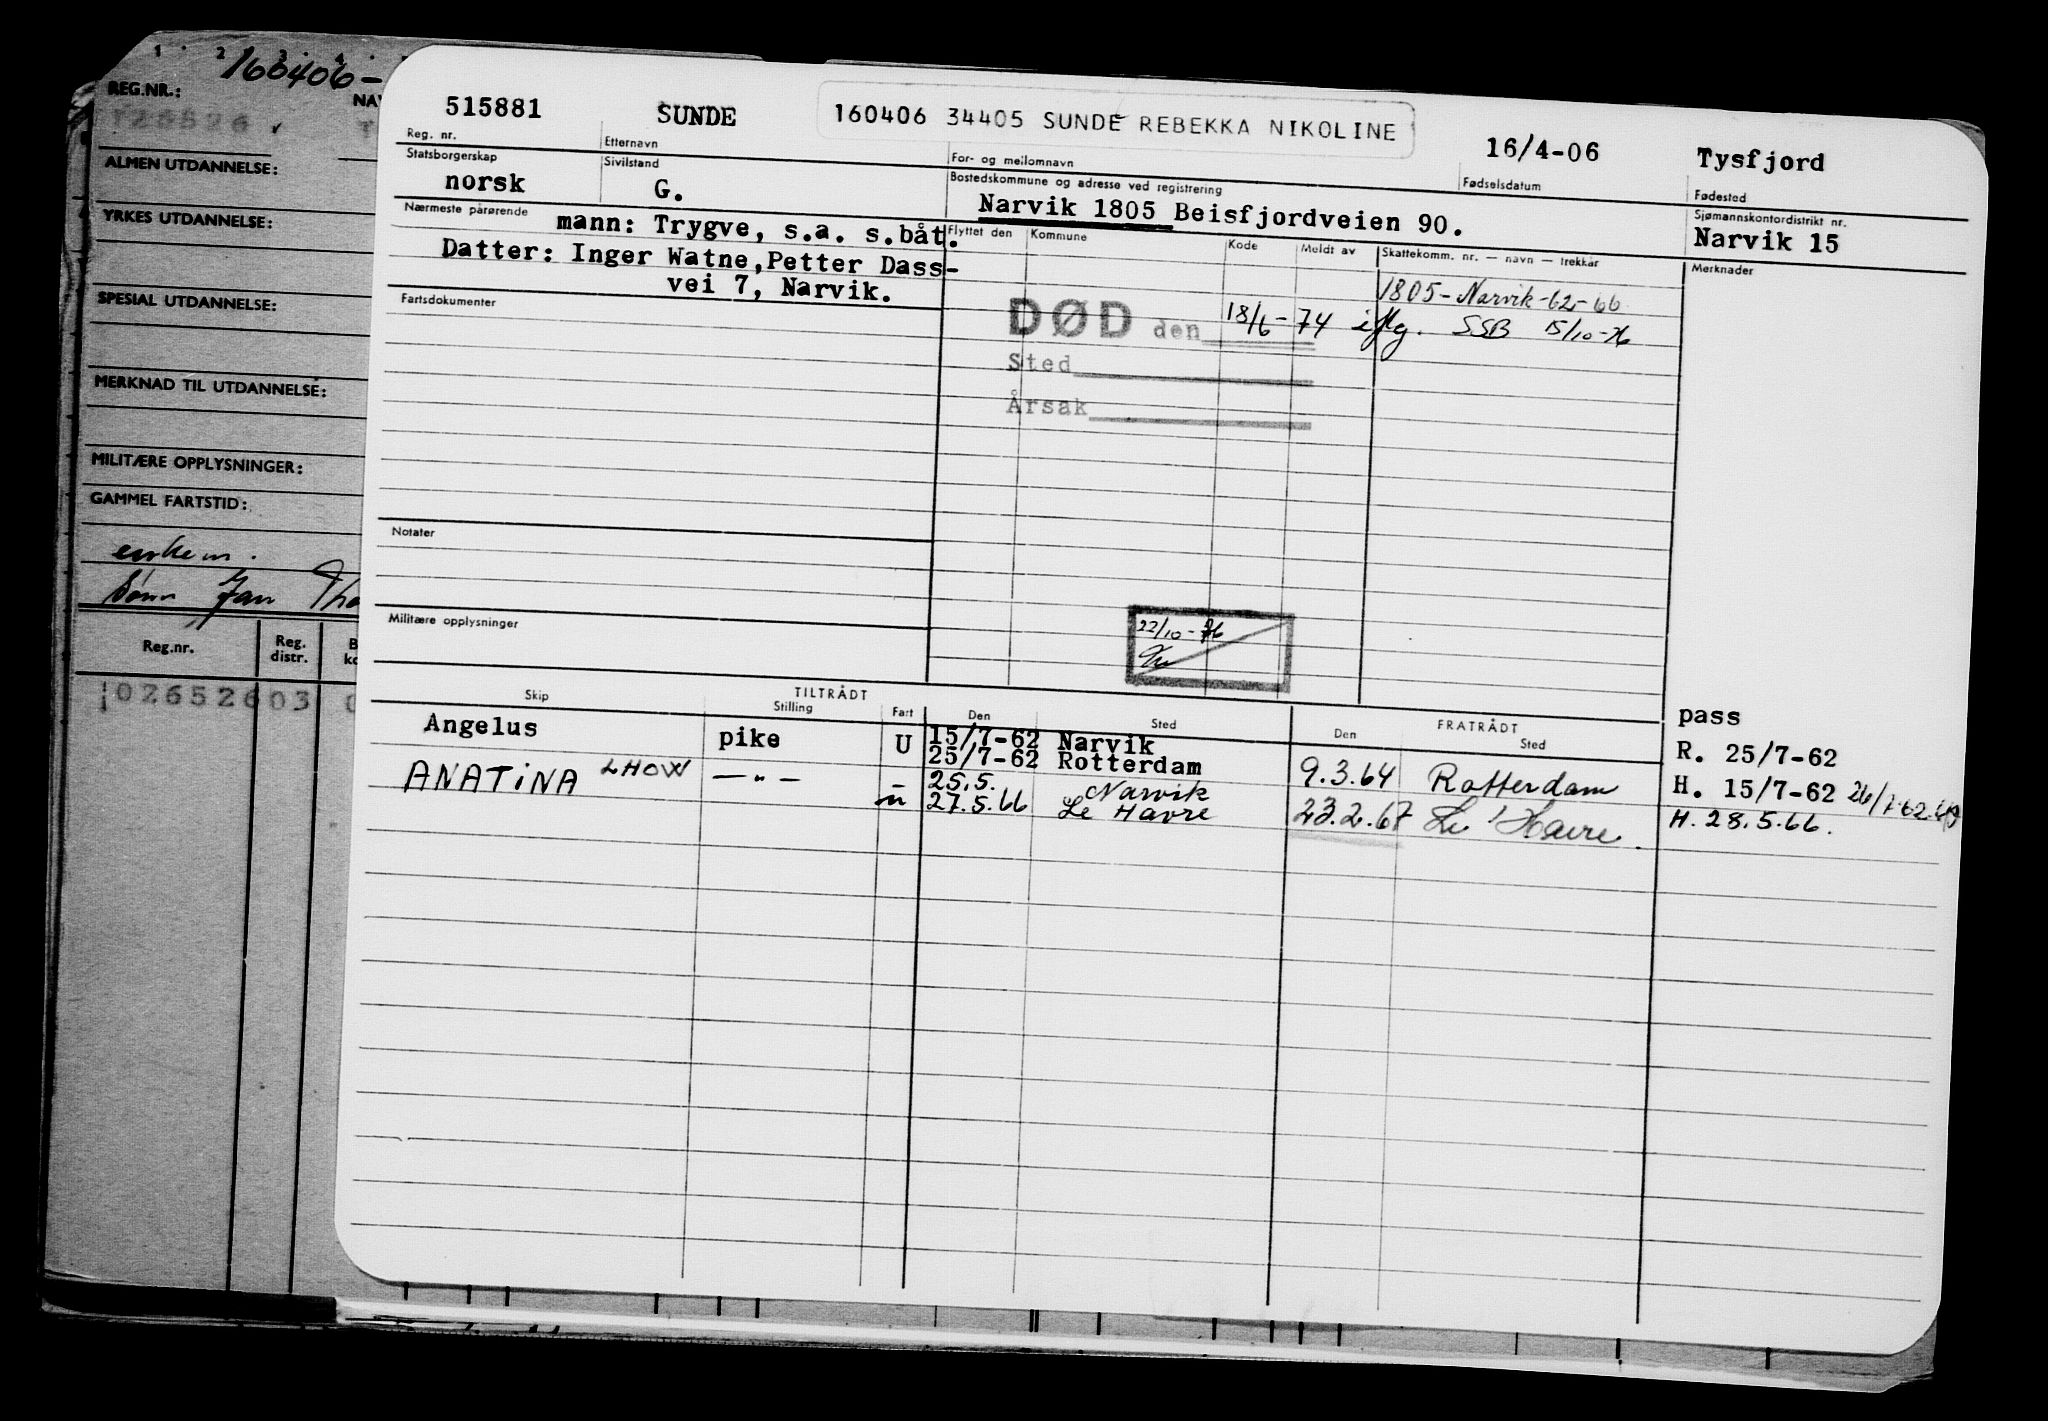 1 2 3 4
160406-
REG.NR.:
NAV
ALMEN UTDANNELSE:
YRKES UTDANNELSE:
SPESIAL UTDANNELSE:
MERKNAD TIL UTDANNELSE:
MILITÆRE OPPLYSNINGER:
GAMMEL FARTSTID:
enkem.
Sønn Jan Tho
Reg.nr. Reg. distr. B ko
02652603 0
515881 SUNDE 160406 34405 SUNDE REBEKKA NIKOLINE 16/4-06 Tysfjord
Reg. nr. Etternavn For- og mellomnavn Fødselsdatum Fødested
Statsborgerskap Sivilstand Bostedskommune og adresse ved registrering Sjømannskontordistrikt nr.
norsk G. Narvik 1805 Beisfjordveien 90. Narvik 15
Nærmeste pårørende Flyttet den Kommune Kode Meldt av Skattekomm. nr. — navn — trekkår Merknader
mann: Trygve, s.a. s.båt.
Datter: Inger Watne,Petter Dass-
vei 7, Narvik.
1805-Narvik-62-66
Fartsdokumenter
DØD den 18/6-74 iflg. SSB 15/10-76
Sted
Årsak
Notater
Militære opplysninger
22/10-76
TILTRÅDT FRATRÅDT
Skip Stilling Fart Den Sted Den Sted
pass
Angelus pike U 15/7-62 Narvik
25/7-62 Rotterdam 9.3.64 Rotterdam R. 25/7-62
ANATINA LHOW —"— - 25.5. Narvik H. 15/7-62
u 27.5.66 Le Havre 23.2.67 Le Havre. H. 28.5.66.